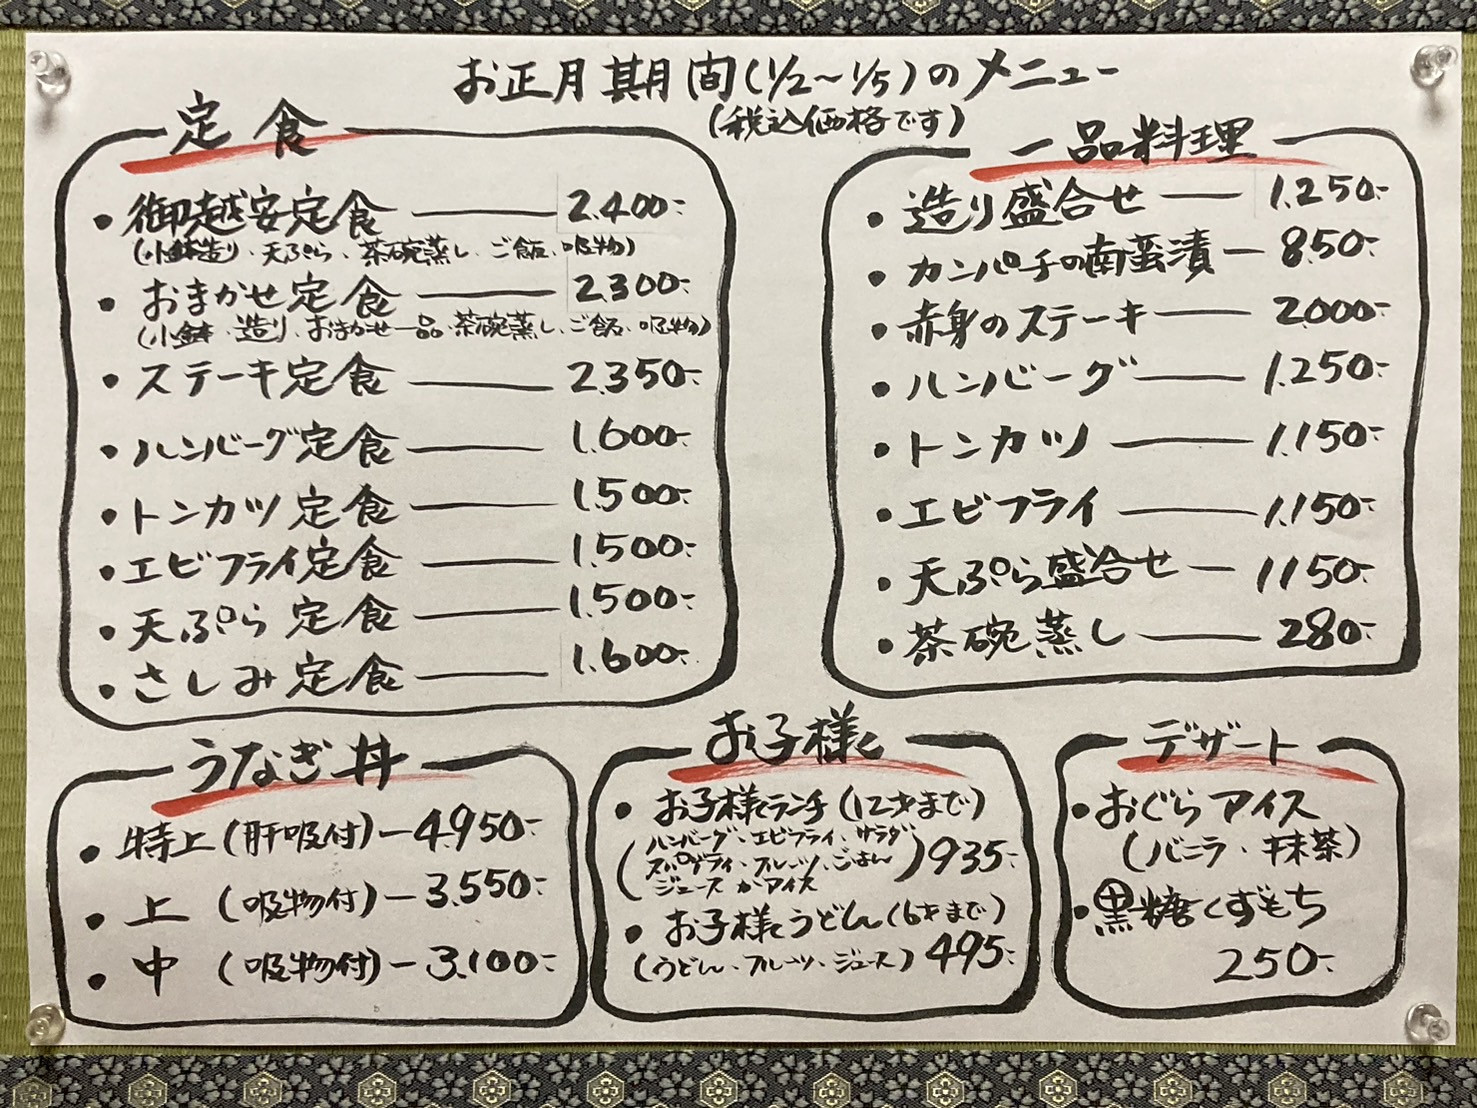 お正月期間(1/2〜1/5)のメニュー
(税込価格です)
定食
・御越安定食 ―― 2.400-
(小鉢造り、天ぷら、茶碗蒸し、ご飯、吸物)
・おまかせ定食 ―― 2.300-
(小鉢、造り、おまかせ一品、茶碗蒸し、ご飯、吸物)
・ステーキ定食 ―― 2.350-
・ハンバーグ定食 ―― 1.600-
・トンカツ定食 ―― 1.500-
・エビフライ定食 ―― 1.500-
・天ぷら定食 ―― 1.500-
・さしみ定食 ―― 1.600-
一品料理
・造り盛合せ ―― 1.250-
・カンパチの南蛮漬 ― 850-
・赤身のステーキ ― 2.000-
・ハンバーグ ―― 1.250-
・トンカツ ―― 1.150-
・エビフライ ―― 1.150-
・天ぷら盛合せ ― 1150-
・茶碗蒸し ―― 280-
うなぎ丼
・特上(肝吸付)― 4.950-
・上(吸物付)― 3.550-
・中(吸物付)― 3.100-
お子様
・お子様ランチ(12才まで)
(ハンバーグ、エビフライ、サラダ
スパゲティ、フルーツ、ごはん
ジュースかアイス) 935-
・お子様うどん(6才まで)
(うどん、フルーツ、ジュース) 495-
デザート
・おぐらアイス
(バニラ、抹茶)
・黒糖くずもち
250-